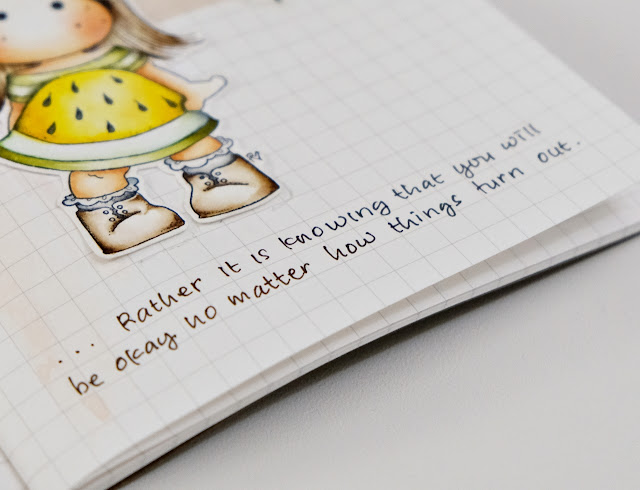 ... Rather it is knowing that you will
be okay no matter how things turn out.